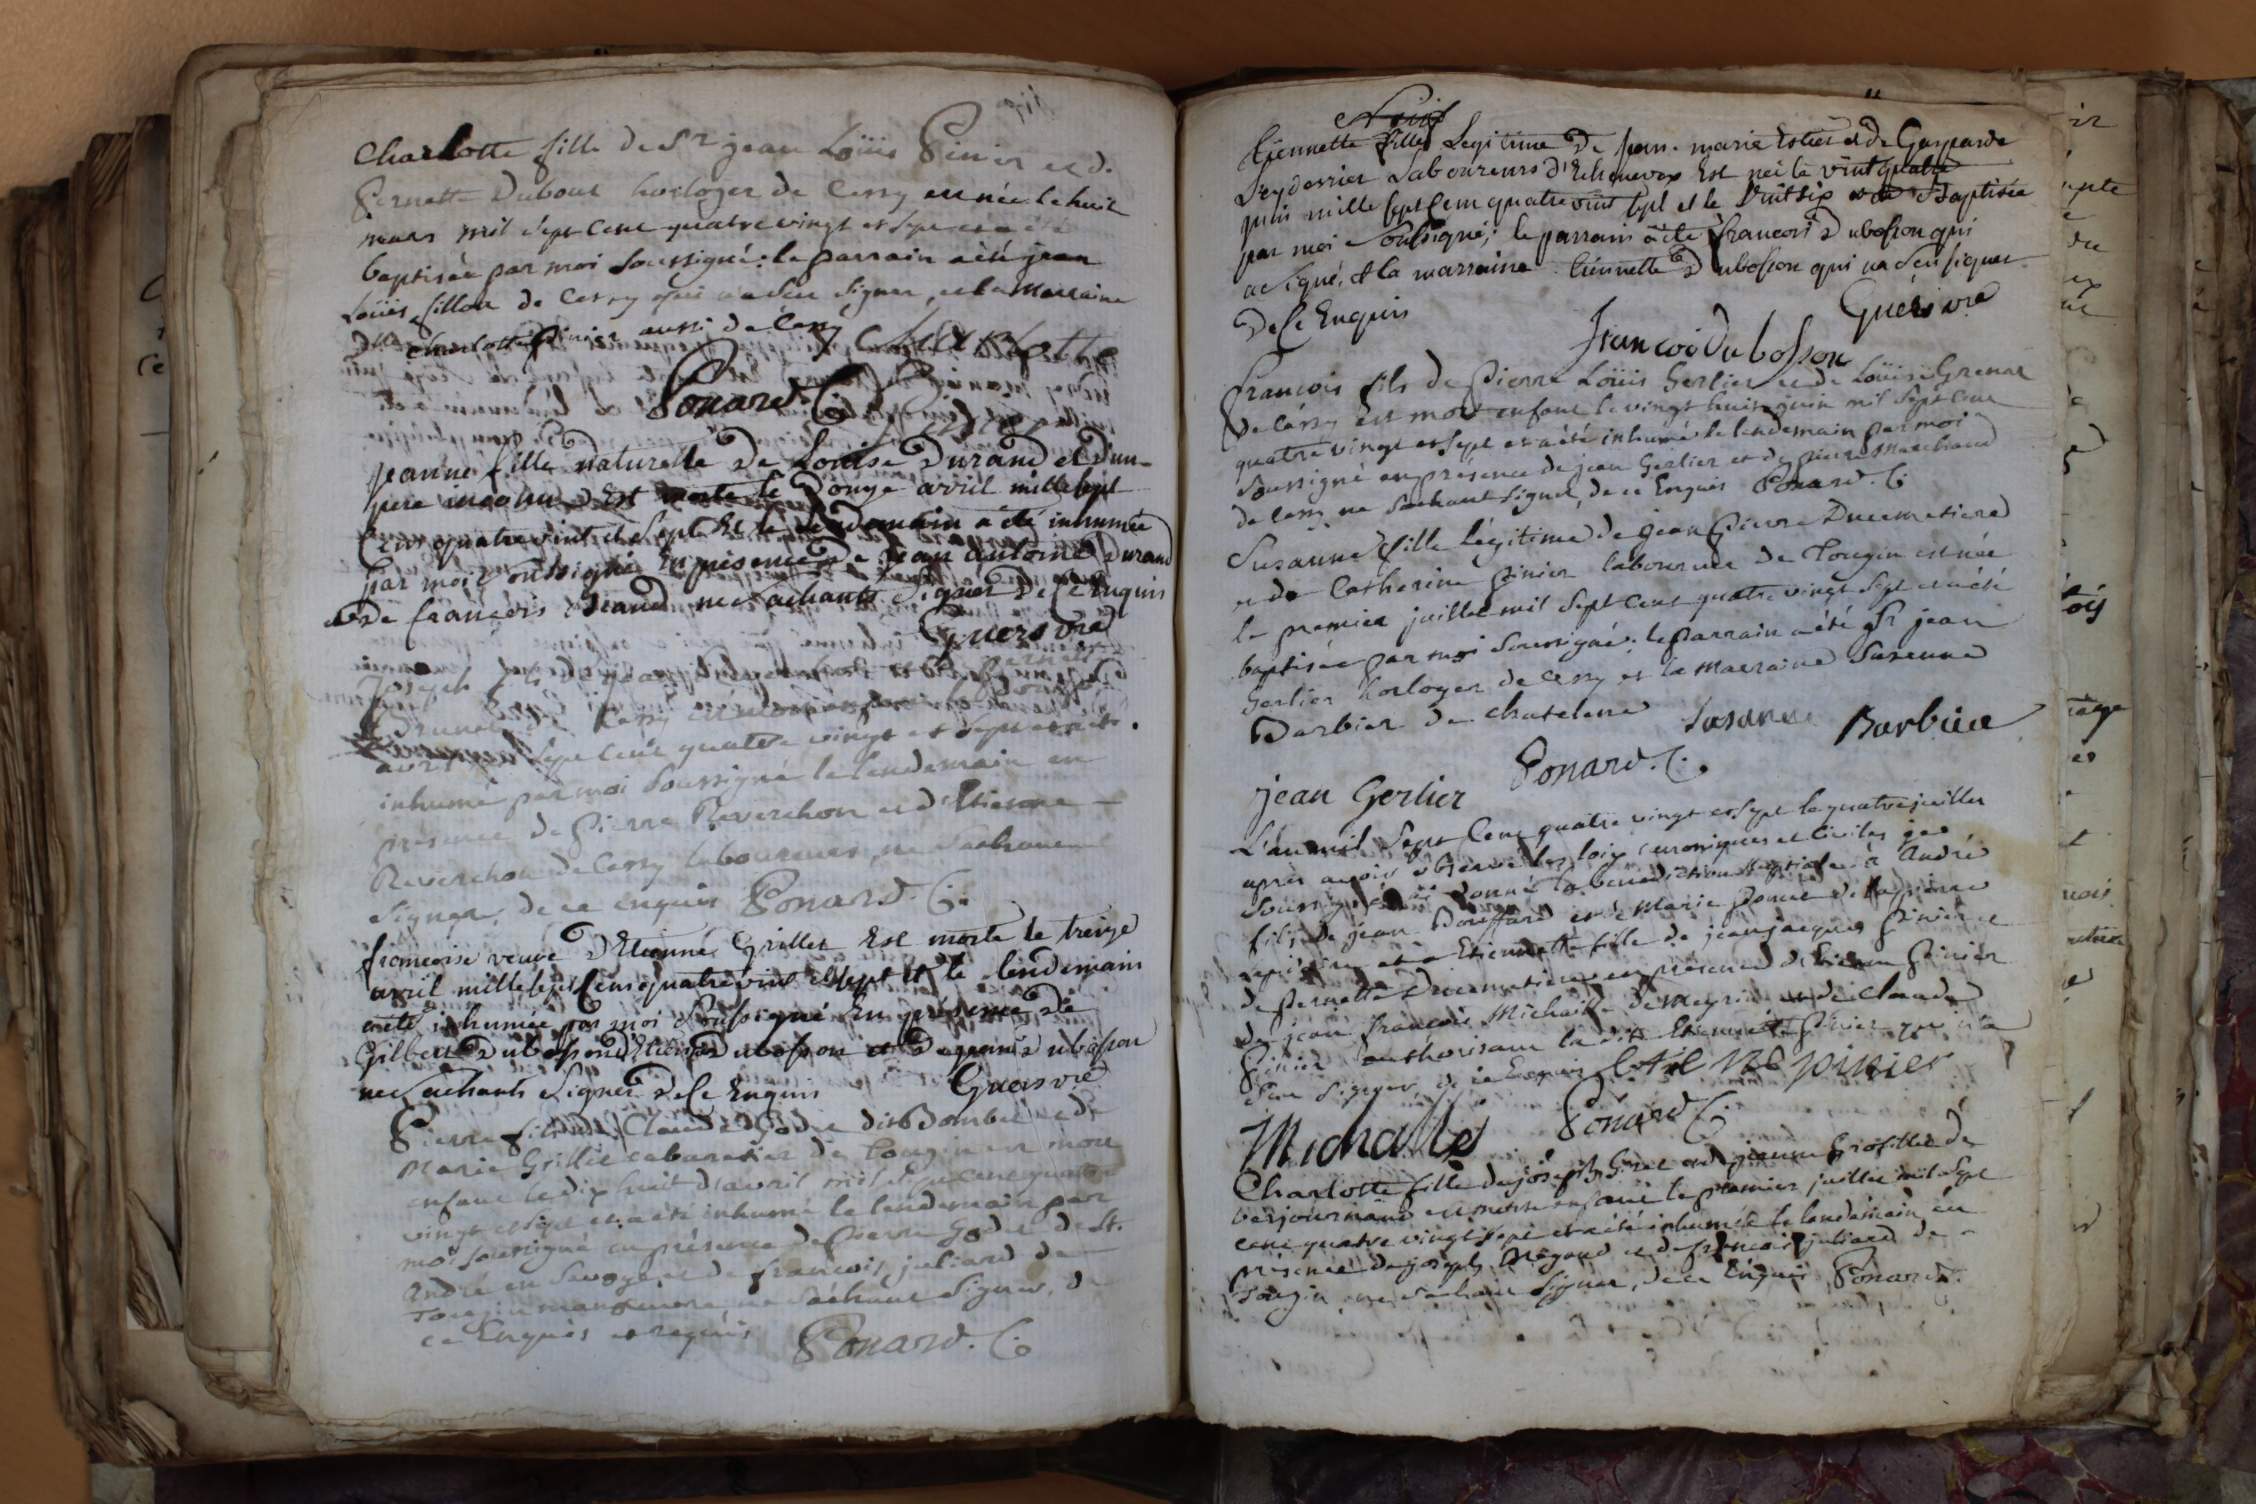 Charlotte fille de Sr jean Loüis Pinier et de
Pernette Dubout horloger de Cessy est née le huit
mars mil sept cent quatre vingt et sept et a été
baptisée par moi soussigné: le parrain a été jean
Loüis fillon de Cessy qui n'a sçu signer, et la Marraine
Dlle Charlotte Pinier aussi de Cessy Charlotte
Ponard. C. Pinier
jeanne fille naturelle de Louise Durand et d'un
pere inconnu Est morte le Douze avril mille sept
Cens quatre vint et Sept Et le lendemain a été inhumée
par moi soussigné En présence de jean antoine Durand
et de françois Durand ne sachants signer De Ce Enquis
Guers vre
joseph fils de
Brunet Cessy
avril sept cent quatre vingt et sept et a été
inhumé par moi soussigné le lendemain en
présence de Pierre Reverchon et d'Etienne
Reverchon de Cessy laboureurs, ne sachant
signer, de ce enquis Ponard. C.
françoise veuve D'Etienne Grillet Est morte le treize
avril mille sept Cens quatre vint et sept Et le lendemain
a été inhumée par moi soussigné En présence de
Gilbert Dubosson d'Etienne Dubosson et de Dubosson
ne sachants signer De Ce Enquis Guers vre
Pierre fils de Claude Godet dit Dombet et de
Marie Grillet cabaretier de Tougin est mort
enfant le dix huit d'avril mil sept cent quatre
vingt et sept et a été inhumé le lendemain par
moi soussigné en présence de Pierre Godet de St.
André en Savoye et de françois juliard de
Tougin manoeuvre, ne sachant signer, de
ce Enquis et requis Ponard. C.
Etiennette fille Legitime de jean-marie Estier et de Gasparde
Seydessier Laboureurs d'Echenevex Est née le vint quatre
juin mille sept Cens quatre vint sept et le vint six Baptisée
par moi soussigné; le parrain a été françois Dubosson qui
a signé, et la marraine Etiennette Dubosson qui n'a sçu signer
De Ce Enquis Guers vre
françois Dubosson
François fils de Pierre Loüis Gerlier et de Loüise Grenat
de Cessy est mort enfant le vingt huit juin mil sept cent
quatre vingt et sept et a été inhumé le lendemain par moi
soussigné en présence de jean Gerlier et de pierre Marchand
de Cessy ne sachant signer, de ce Enquis Ponard. C.
Susanne fille légitime de jean Pierre Ducimetiere
et de Catherine Pinier laboureur de Tougin est née
le premier juillet mil sept cent quatre vingt sept et a été
baptisée par moi soussigné: le parrain a été Sr jean
Gerlier horloger de Cessy et la Marraine Susanne
Barbier de Chatelene Susanne Barbier
jean Gerlier Ponard. C.
L'an mil sept cent quatre vingt et sept le quatre juillet
après avoir observé les loix canoniques et civiles je
soussigné ai donné la bénédiction nuptiale à André
fils de jean Bouffard et de Marie Ponut de la
et à Etiennette fille de jean jacques Pinier et
de Pernette Ducimetiere en présence d'Etienne Pinier
de jean françois Michaille de Meyrin et de Claude
Pinier authorisant la dite Etiennette Pinier qui n'a
sçu signer de ce Enquis Etiene pinier
Michaille Ponard C.
Charlotte fille de joseph Giret et de jeanne Grosfillex de
est morte enfant le premier juillet mil sept
cent quatre vingt sept et a été inhumée le lendemain en
présence de joseph et de françois juliard de
Tougin ne sachant signer, de ce Enquis Ponard C.